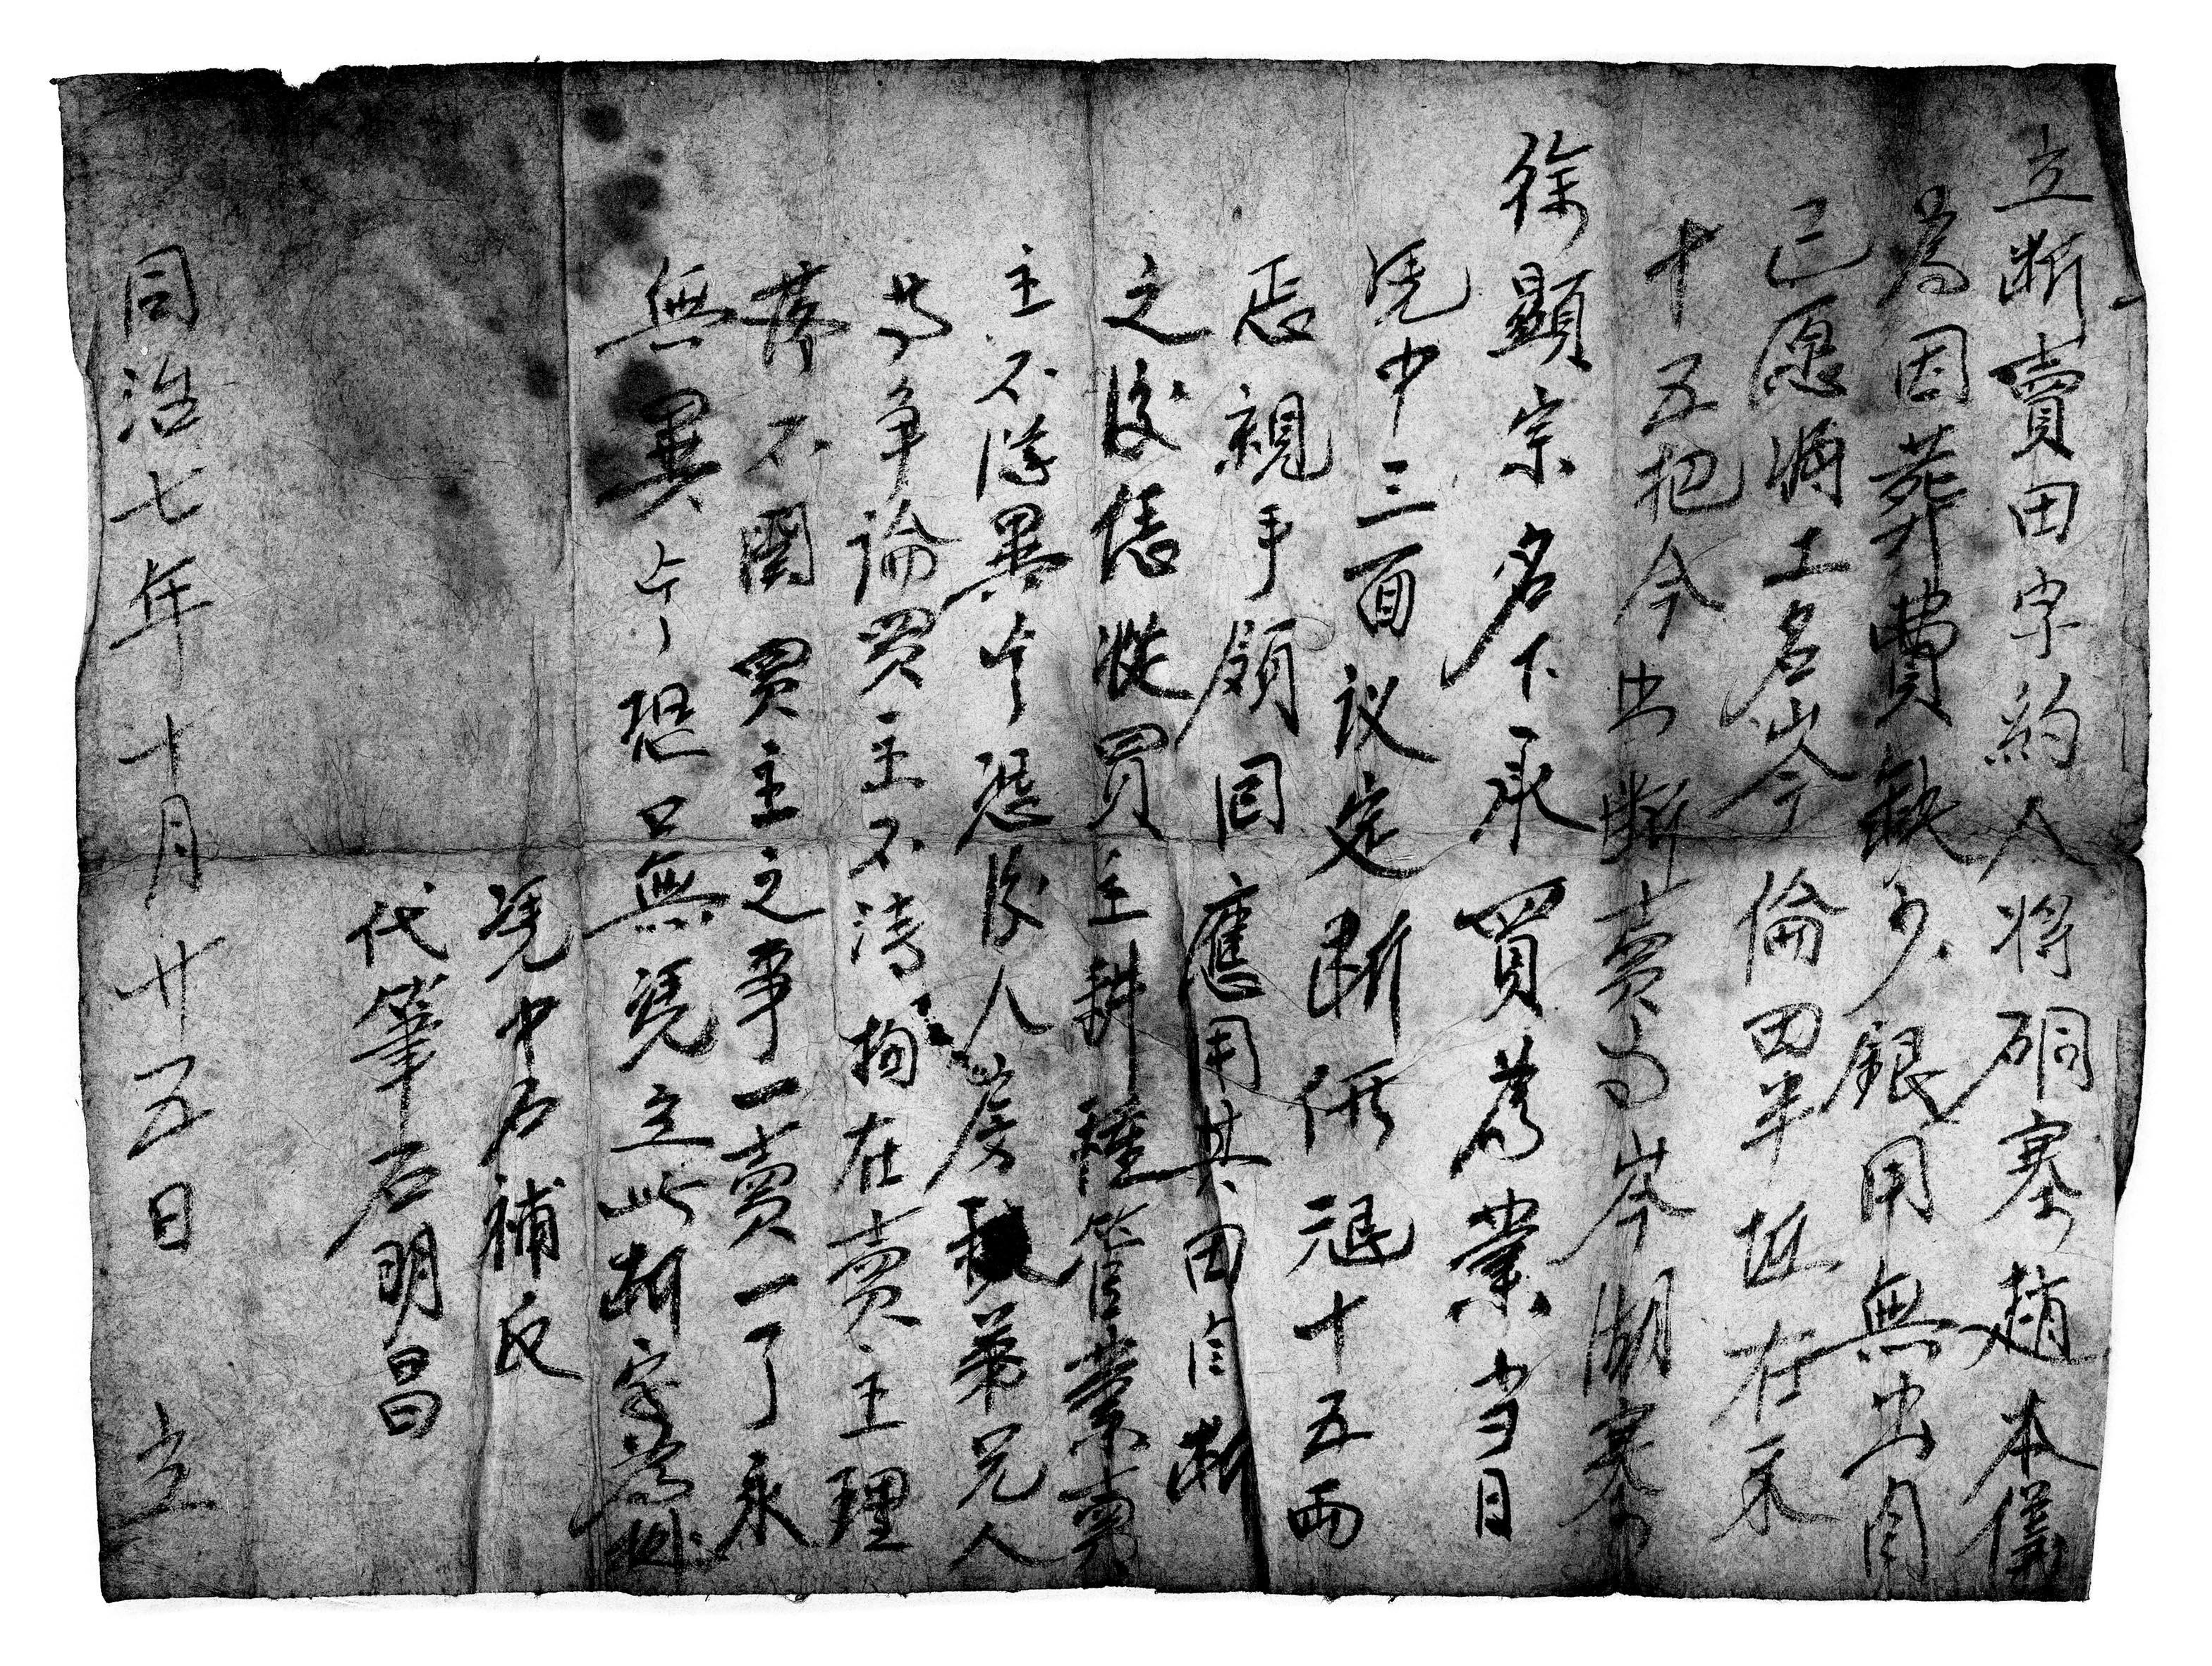 立断賣田字約人将硐寨趙本儒
為因葬費缺少銀用無出自
己愿將土名岑倫田半坵在禾
十五把今出断賣與岑湖寨
徐顯宗名下承買為業当日
凴中三面议定断價十五両
親手領回應用其田自断
之後恁從買主耕種管業賣
主不得異今恐後人房族弟兄人
等争論買主不清拘在賣主理
落不関買主之事一賣一了永
無異今恐口無凴立此断字為據
凴中石補
代筆石明昌
同治七年十月廿五日立